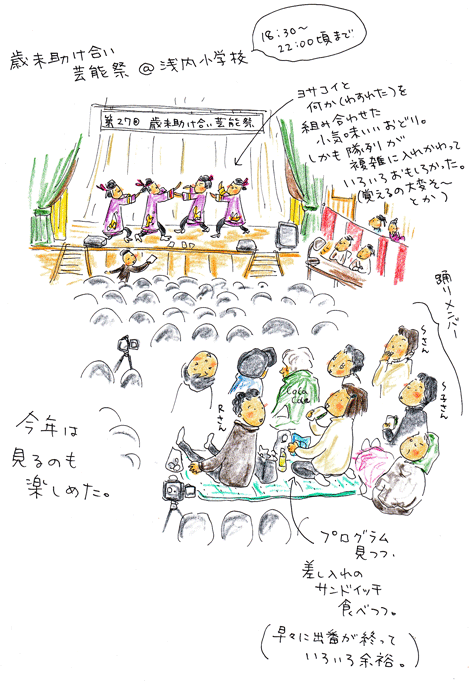 歳末助け合い
芸能祭 @ 浅内小学校
18:30〜
22:00頃まで
第27回 歳末助け合い芸能祭
ヨサコイと
何か(わすれた)を
組み合わせた
小気味いいおどり。
しかも隊列が
複雑に入れかわって
いろいろおもしろかった。
(覚えるの大変そ〜
とか)
踊りメンバー
Sさん
Rさん
Coca
Cola
今年は
見るのも
楽しめた。
プログラム
見つつ、
差し入れの
サンドイッチ
食べつつ。
(早々に出番が終って
いろいろ余裕。)